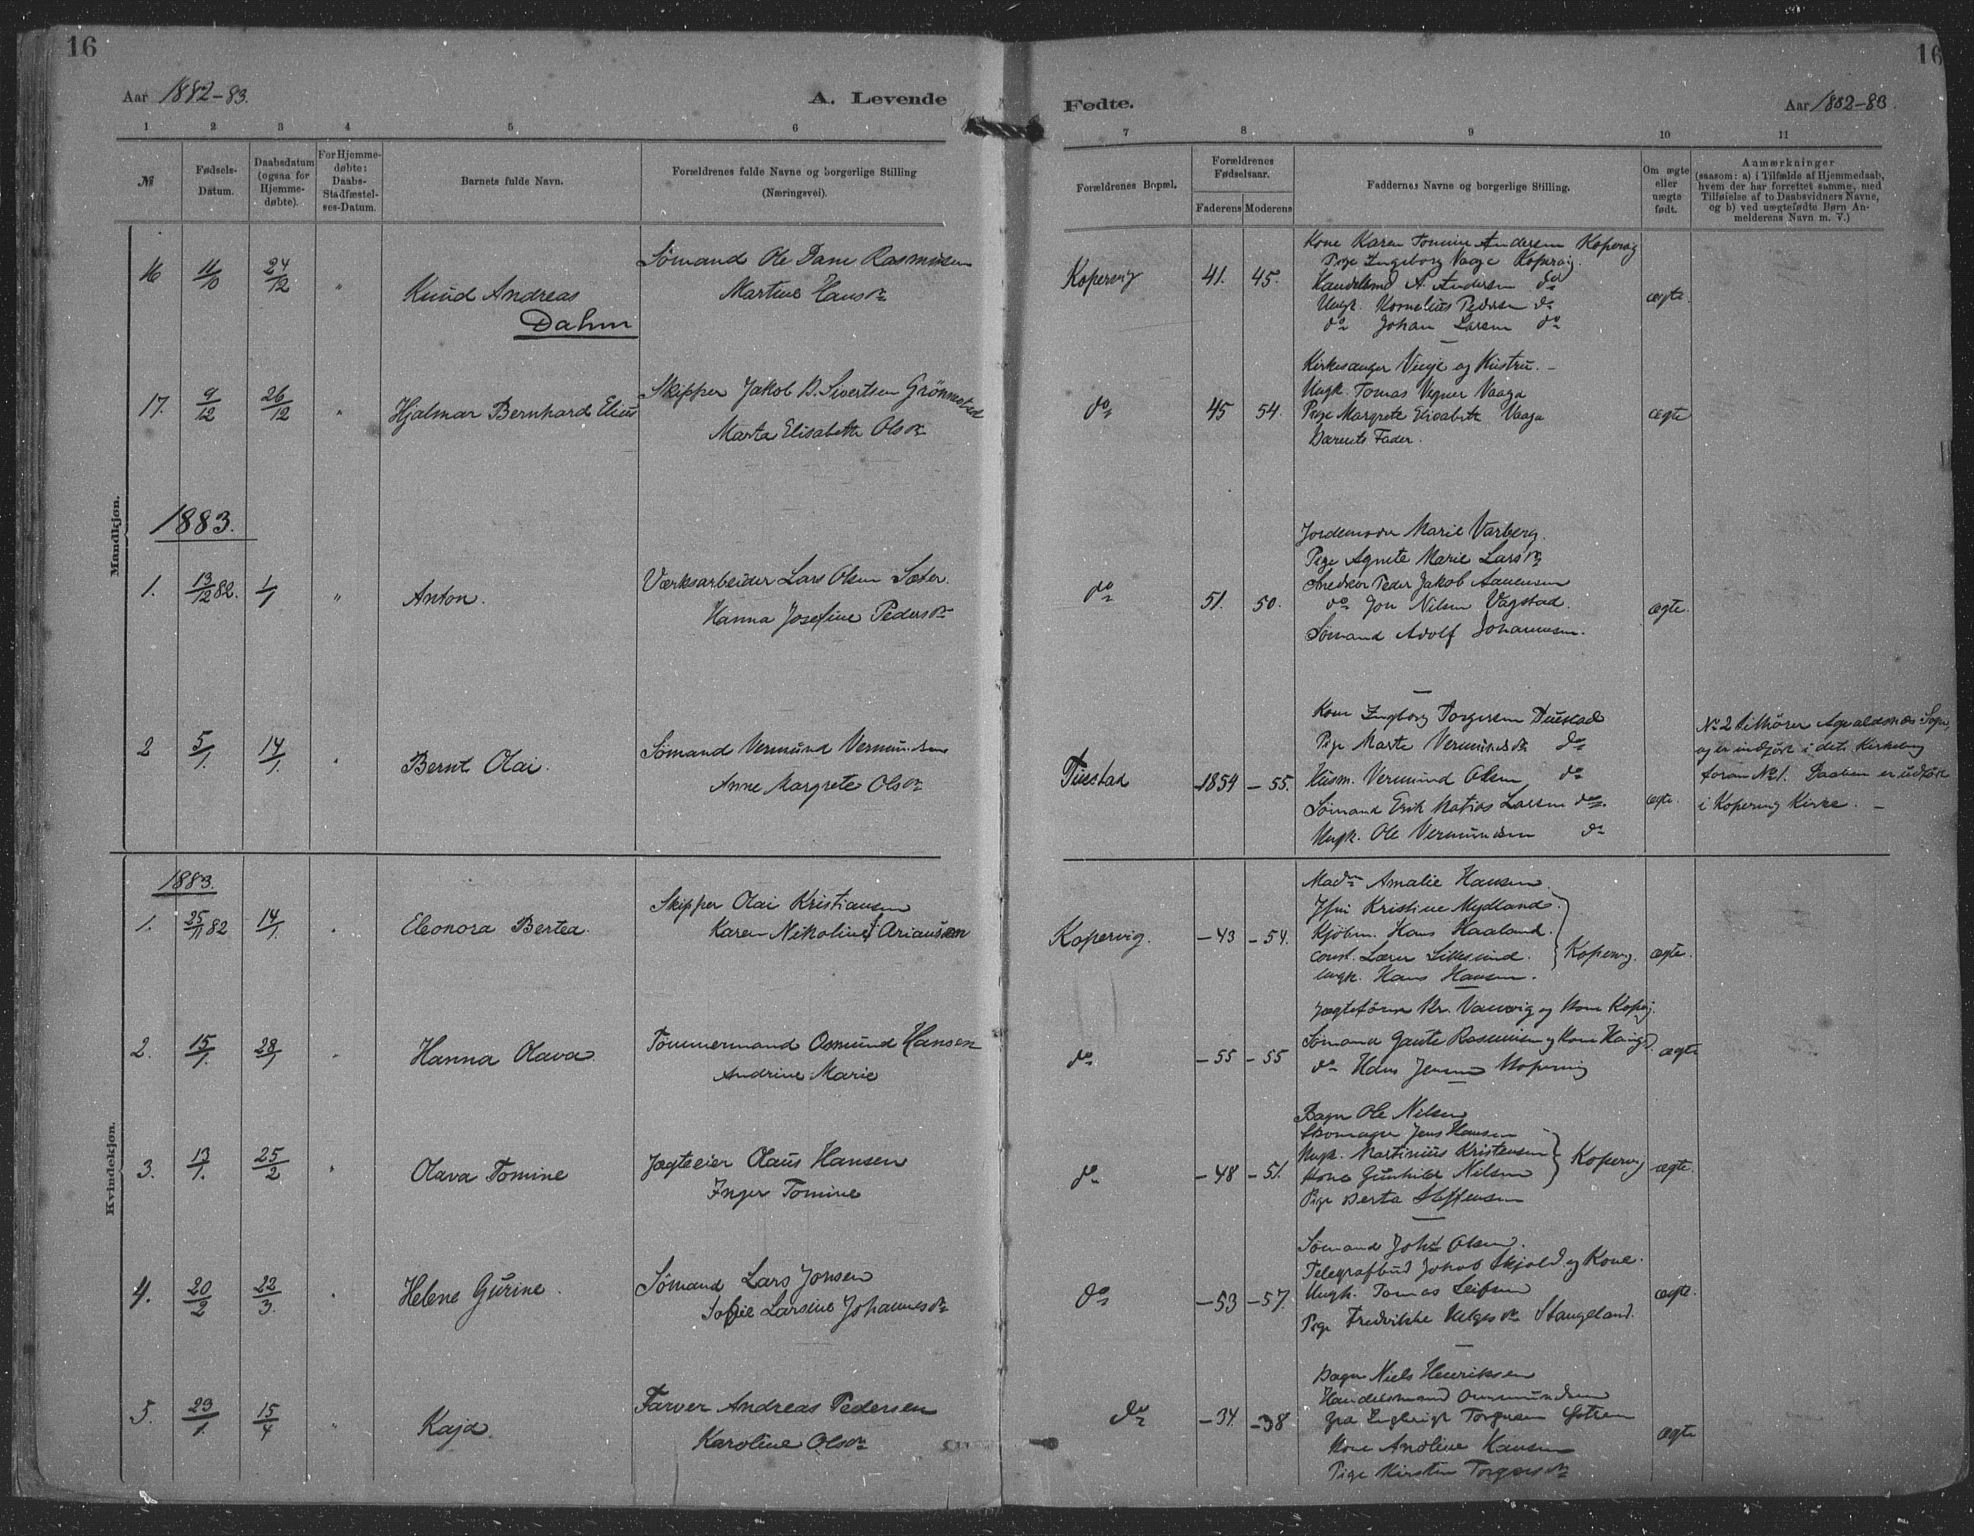 16
16
Aar 1882-83.
A. Levende
Fødte.
Aar 1882-83.
1 2 3 4 5 6 7 8 9 10 11
№
Fødsels-Datum.
Daabsdatum (ogsaa for Hjemme-døbte).
For Hjemme-døbte: Daabs-Stadfæstel-ses-Datum.
Barnets fulde Navn.
Forældrenes fulde Navne og borgerlige Stilling (Næringsvei).
Forældrenes Bopæl.
Forældrenes Fødselsaar.
Faderens Moderens
Faddernes Navne og borgerlige Stilling.
Om ægte eller uægte født.
Anmærkninger
(saasom: a) i Tilfælde af Hjemmedaab,
hvem der har forrettet samme, med
Tilføielse af to Daabsvidners Navne,
og b) ved uægtefødte Børn An-
melderens Navn m. V.)
Mandkjøn.
16 11/10 24/12 "
Knud Andreas
Dahm
Sømand Ole Dane Rasmussen
Martine Hansdr
Kopervig 41. 45.
Kone Karen Tomine Andersen Kopervig
Pige Ingeborg Vaage Kopervig
Handelsmd A. Andersen do
Ungk. Kornelius Pedersen do
do Johan Larsen do
ægte.
17. 9/12 26/12 "
Hjalmar Bernhard Elius
Skipper Jakob B. Sivertsen Grønnestad
Marta Elisabeth Olsdr
do 45 54.
Kirkesanger Vinje og Hustru.
Ungk. Tomas Vegner Vaaga
Pige Margrete Elisabeth Vaaga
Barnets Fader.
ægte
1883.
1. 13/12 82. 1/1 "
Anton.
Værksarbeider Lars Olsen Sæter.
Hanna Josefine Pedersdr
do 51. 50.
Jordemoder Marie Varberg.
Pige Agnete Marie Larsdr
Snedker Peder Jakob Aanensen
do Jon Nilsen Vagstad.
Sømand Adolf Johannesen.
ægte.
2 5/1. 14/1. "
Bernt Olai.
Sømand Vermund Vermundsen
Anne Margrete Olsdr
Tuestad 1854 - 55.
Kone Ingborg Torgersen Tuestad
Pige Marte Vermundsdr do
Husm. Vermund Olsen do
Sømand Erik Matias Larsen do.
Ungk. Ole Vermundsen do
ægte.
No 2 tilhører Avaldsnes Sogn,
og er indført i dets Kirkebog
foran No 1. Daaben er udført
i Kopervig Kirke.
Kvindekjøn.
1883.
1. 25/11 82 14/1. "
Eleonora Bertea.
Skipper Olai Kristiansen
Karen Nikoline Ariansen
Kopervig. -43 -54.
Madm Amalie Hansen.
Jfru Kristine Mydland.
Kjøbm. Hans Haaland.
Const. Lærer Lillesund.
Ungk. Hans Hansen.
Kopervig.
ægte.
2. 15/1. 28/1 "
Hanna Olava
Tømmermand Osmund Hansen
Andrine Marie
do -55 -55
Jægtefører Kr. Vanvig og Kone Kopvig.
Sømand Gaute Rasmusen og Kone Haugd.
do Hans Jensen Kopervig
ægte
3. 13/1. 25/2 "
Olava Tomine
Jægteeier Olaus Hansen
Inger Tomine
do -48 -51.
Bager Ole Nilsen
Skomager Jens Hansen
Ungk. Martinius Kristensen
Kone Gunhild Nilsen
Pige Berta Steffensen
Kopervig
ægte.
4. 20/2 22/3. "
Helene Gurine.
Sømand Lars Jonsen
Sofie Larsine Johannesdr
do -53 -57.
Sømand Johs Olsen.
Telegrafbud Jakob Skjold og Kone.
Ungk. Tomas Leifsen
Pige Fredrikke Helgesdr Stangeland.
ægte.
5. 29/1. 15/4 "
Kaja.
Farver Andreas Pedersen
Karoline Olsdr
do -34. -38
Bager Niels Henriksen
Handelsmand Ommundsen
Torgersen
Kone Andrine Hansen
Pige Kirsten Torgersdr
ægte